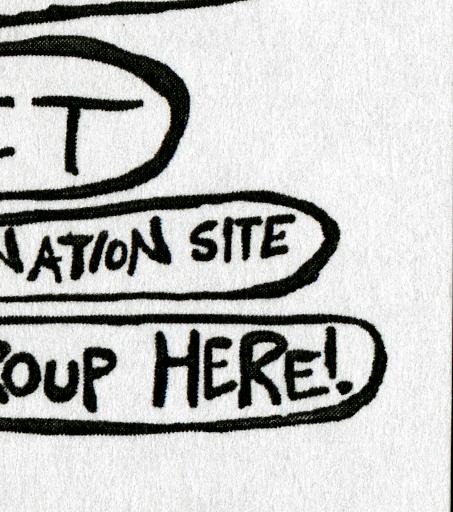 CT
NATION SITE
ROUP HERE!